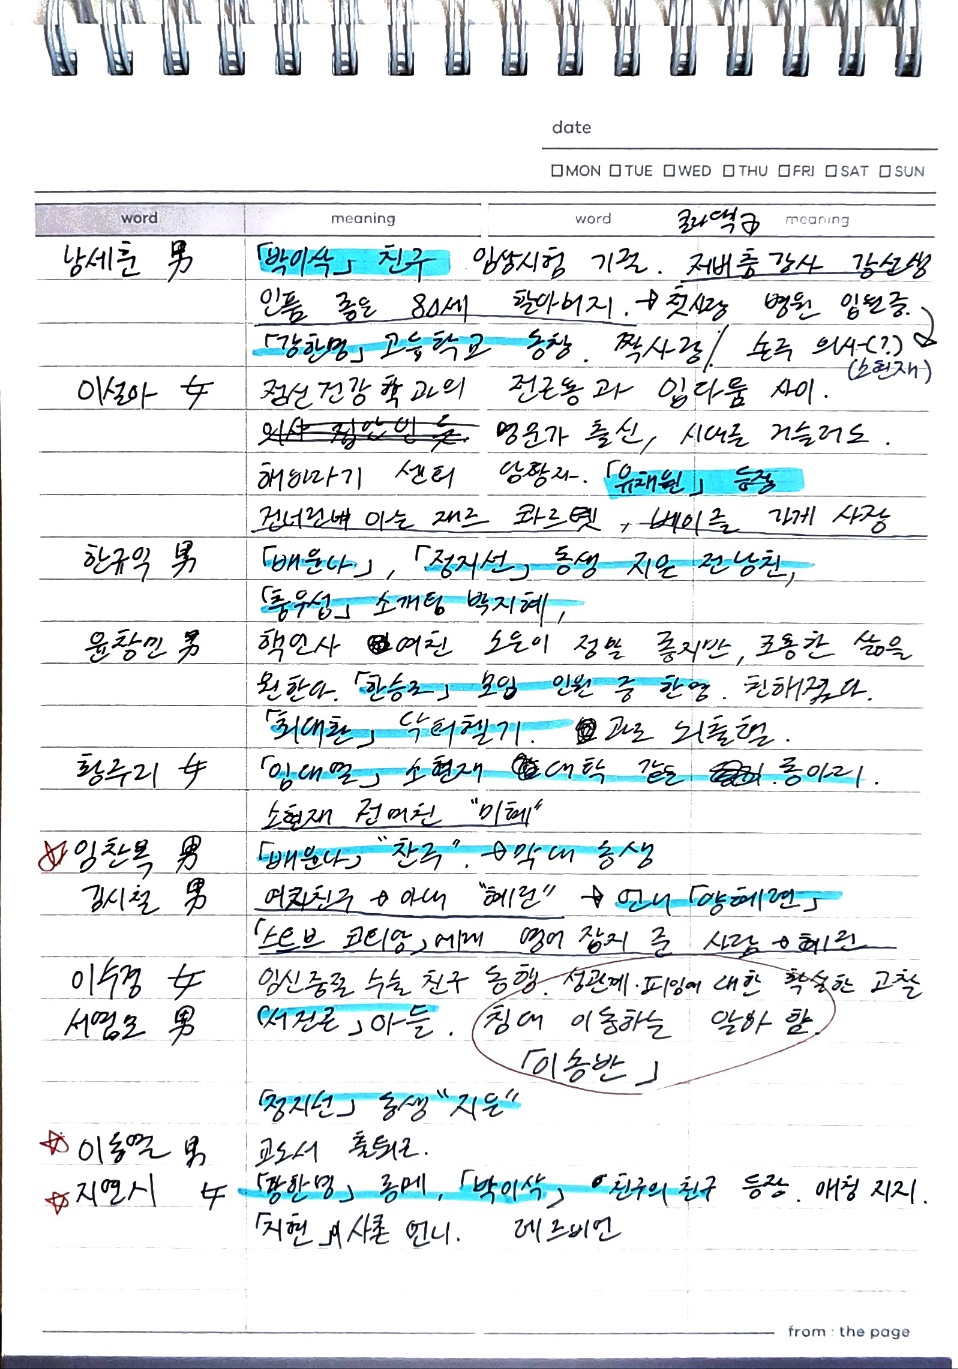 date
□MON □TUE □WED □THU □FRI □SAT □SUN
word meaning word meaning
남세훈 男 「박이삭」 친구 임상시험 기절. 저비층강사 강선생
인품 좋은 80세 할아버지. → 첫사랑 병원 입원중.
「강한영」 고등학교 동창. 짝사랑/ 손주 의사(?)
(소현재)
이설아 女 점선건강 학과의 전근동과 입다툼 사이.
명문가 출신, 시대를 거슬러도.
해바라기 센터 담황자. 「유채원」 등장
건너건너 이슨 재즈 콰르텟, 베이글 가게 사장
한규익 男 「배윤나」, 「정지선」 동생 지은 전남친,
「홍우섭」 소개팅 박지혜,
윤창민 男 핵인사 여친 소은이 정말 좋지만, 조용한 삶을
원한다. 「한승조」 모임 인원 중 한명. 친해졌다.
「최대환」 닥터헬기. 과로 뇌출혈.
황주리 女 「임대열」 소현재 대학 같은 동아리.
소현재 전여친 "미혜"
☆임찬복 男 「배윤나」 "찬주". → 막내 동생
김시철 男 여자친구 → 아내 "혜린" → 언니 「양혜련」
「스티브 코티앙」에게 영어 잡지 준 사람 → 혜린
이수경 女 임신중절 수술 친구 동행. 성관계·피임에 대한 확실한 고찰
서염모 男 「서진곤」 아들. 침대 이동하는 일하 함.
「이동반」
「정지선」 동생 "지은"
☆ 이동열 男 교도서 출퇴근.
☆ 지연지 女 「강한영」 룸메, 「박이삭」 친구의 친구 등장. 애칭 지지.
「지현」의 사촌 언니. 레즈비언
from : the page